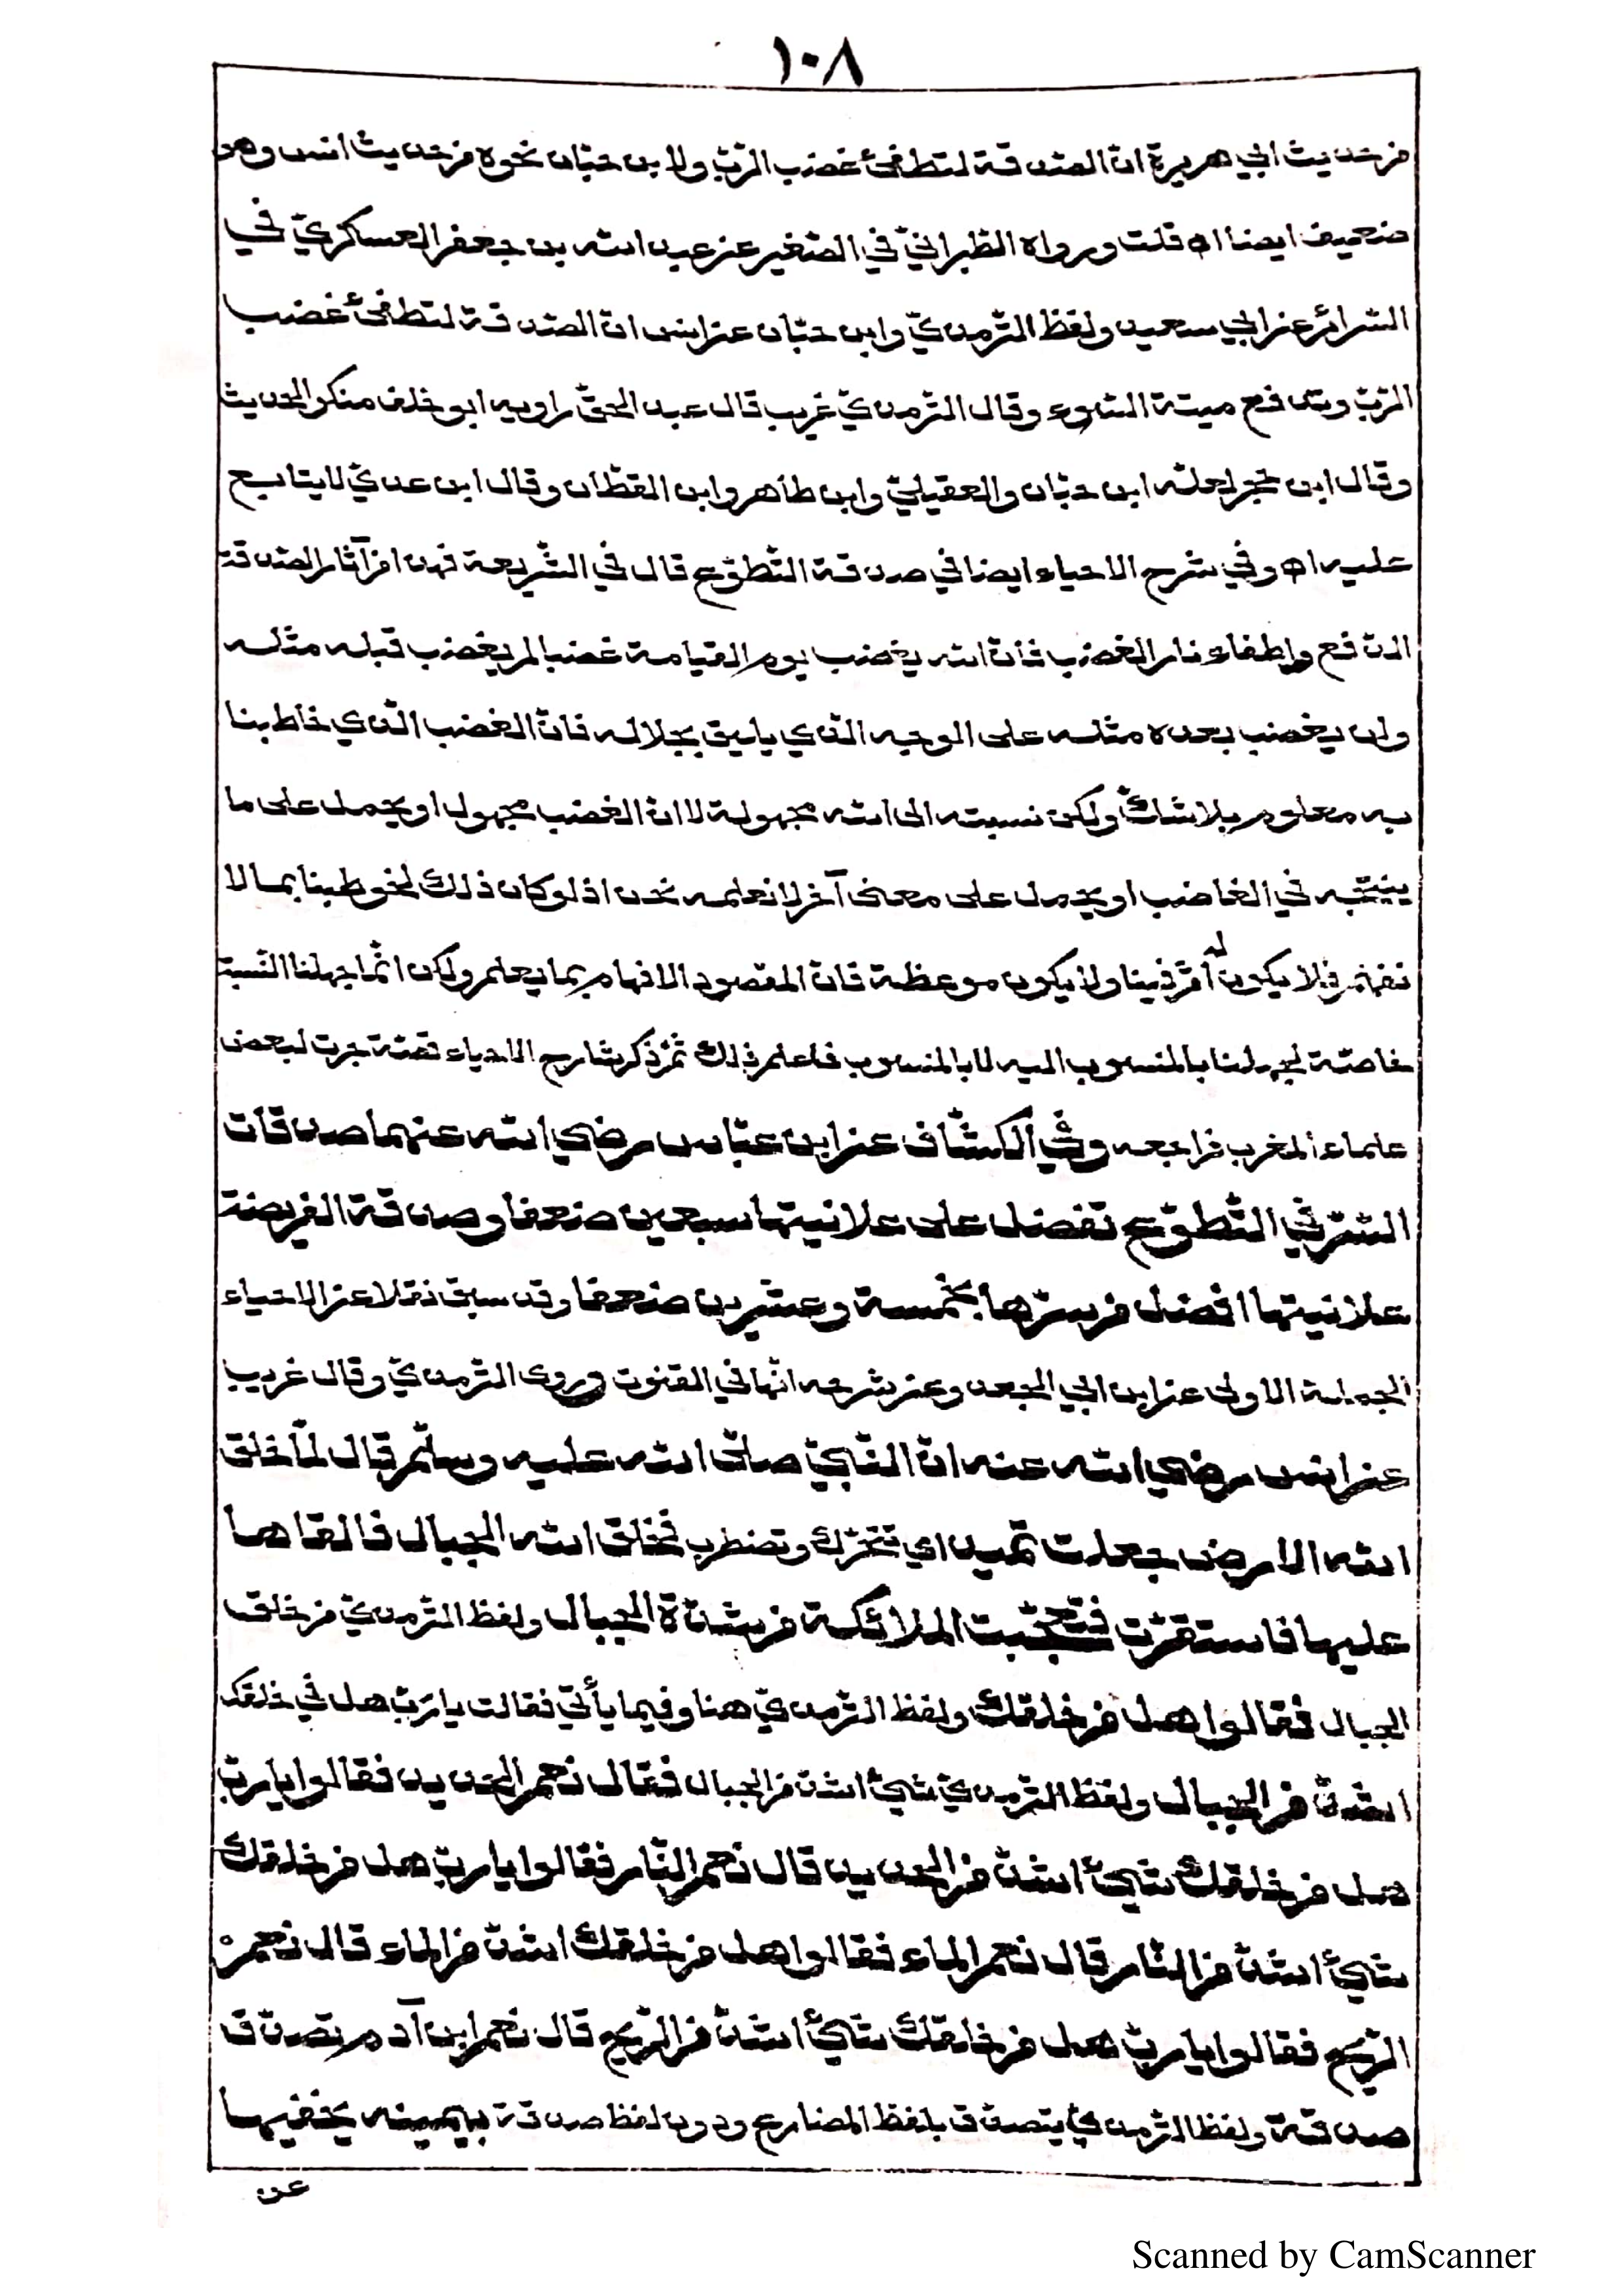 ١٠٨
من حديث ابي هريرة انّ الصّدقة لتطفئ غضب الرّبّ ولابن حبّان نحوه من حديث انس وهو
ضعيف ايضا اه قلت ورواه الطّبرانيّ في الصّغير عن عبد الله بن جعفر العسكريّ في
السّرائر عن ابي سعيد ولفظ التّرمذيّ وابن حبّان عن انس انّ الصّدقة لتطفئ غضب
الرّبّ وتدفع ميتة السّوء وقال التّرمذيّ غريب قال عبد الحقّ راويه ابو خلف منكر الحديث
وقال ابن حجر اعلّه ابن حبّان والعقيليّ وابن طاهر وابن القطّان وقال ابن عديّ لا يتابع
عليه اه وفي شرح الاحياء ايضا في صدقة التّطوّع قال في الشّريعة فهذا من آثار الصّدقة
الدّفع واطفاء نار الغضب فانّ الله يغضب يوم القيامة غضبا لم يغضب قبله مثله
ولن يغضب بعده مثله على الوجه الّذي يليق بجلاله فانّ الغضب الّذي خاطبنا
به معلوم بلا شكّ ولكن نسبته الى الله مجهولة لا انّ الغضب مجهول او يحمل على ما
ينتجه في الغاضب او يحمل على معنى آخر لا نعلمه نحن اذ لو كان ذلك لخوطبنا بما لا
نفهم فلا يكون له أثر فينا ولا يكون موعظة فانّ المقصود الافهام بما يعلم ولكن انّما جهلنا النّسبة
خاصّة لجهلنا بالمنسوب اليه لا بالمنسوب فاعلم ذلك ثمّ ذكر شارح الاحياء قصّة جرت لبعض
علماء المغرب فراجعه وفي الكشّاف عن ابن عبّاس رضي الله عنهما صدقات
السّرّ في التّطوّع تفضل على علانيتها سبعين ضعفا وصدقة الفريضة
علانيتها افضل من سرّها بخمسة وعشرين ضعفا وقد سبق نقلا عن الاحياء
الجملة الاولى عن ابن ابي الجعد وعن شرحه انّها في القنوت وروى التّرمذيّ وقال غريب
عن انس رضي الله عنه انّ النّبيّ صلّى الله عليه وسلّم قال لمّا خلق
الله الارض جعلت تميد اي تتحرّك وتضطرب فخلق الله الجبال فالقاها
عليها فاستقرّت فتعجّبت الملائكة من شدّة الجبال ولفظ التّرمذيّ من خلق
الجبال فقالوا هل من خلقك ولفظ التّرمذيّ هنا وفيما يأتي فقالت يا ربّ هل في خلقك
اشدّ من الجبال ولفظ التّرمذيّ شيئ اشدّ من الجبال فقال نعم الحديد فقالوا يا ربّ
هل من خلقك شيئ اشدّ من الحديد قال نعم النّار فقالوا يا ربّ هل من خلقك
شيئ اشدّ من النّار قال نعم الماء فقالوا هل من خلقك اشدّ من الماء قال نعم
الرّيح فقالوا يا ربّ هل من خلقك شيئ اشدّ من الرّيح قال نعم ابن آدم تصدّق
صدقة ولفظ التّرمذيّ يتصدّق بلفظ المضارع ودون لفظ صدقة بيمينه يخفيها
عن
Scanned by CamScanner